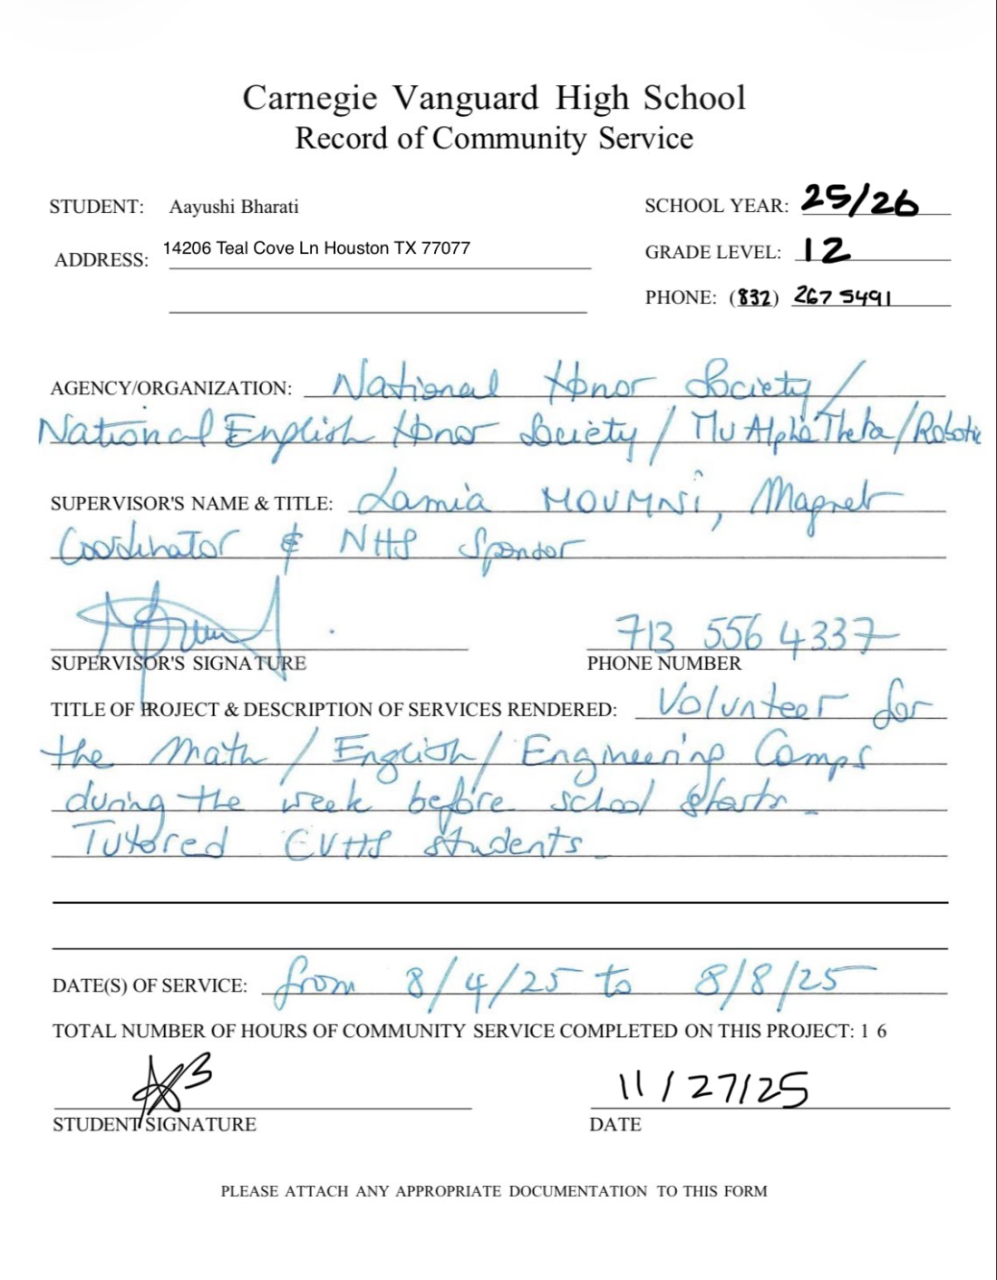 Carnegie Vanguard High School
Record of Community Service
STUDENT: Aayushi Bharati
SCHOOL YEAR: 25/26
ADDRESS: 14206 Teal Cove Ln Houston TX 77077
GRADE LEVEL: 12
PHONE: (832) 267 5491
AGENCY/ORGANIZATION: National Honor Society/
National English Honor Society / Mu Alpha Theta/Robotic
SUPERVISOR'S NAME & TITLE: Lamia MOUMNi, Magnet
Coordinator & NHS Sponsor
713 556 4337
SUPERVISOR'S SIGNATURE PHONE NUMBER
TITLE OF PROJECT & DESCRIPTION OF SERVICES RENDERED: Volunteer for
the Math / English / Engineering Camps
during the week before school starts.
Tutored CVHS students.
DATE(S) OF SERVICE: from 8/4/25 to 8/8/25
TOTAL NUMBER OF HOURS OF COMMUNITY SERVICE COMPLETED ON THIS PROJECT: 1 6
11/27/25
STUDENT SIGNATURE DATE
PLEASE ATTACH ANY APPROPRIATE DOCUMENTATION TO THIS FORM